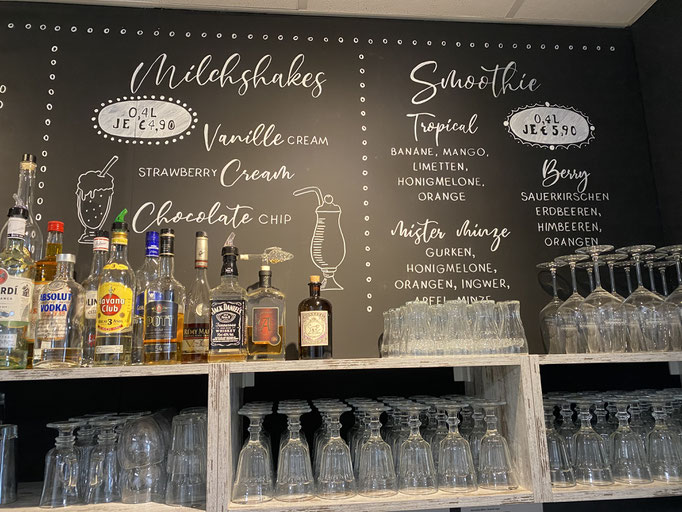 Milchshakes
0,4L
JE €4,90
Vanille CREAM
STRAWBERRY Cream
Chocolate CHIP
Smoothie
0,4L
JE €5,90
Tropical
BANANE, MANGO,
LIMETTEN,
HONIGMELONE,
ORANGE
Berry
SAUERKIRSCHEN
ERDBEEREN,
HIMBEEREN,
ORANGEN
Mister Minze
GURKEN,
HONIGMELONE,
ORANGEN, INGWER,
APFEL, MINZE
ABSOLUT
VODKA
Havana
Club
3
JACK DANIEL'S
Tennessee
WHISKEY